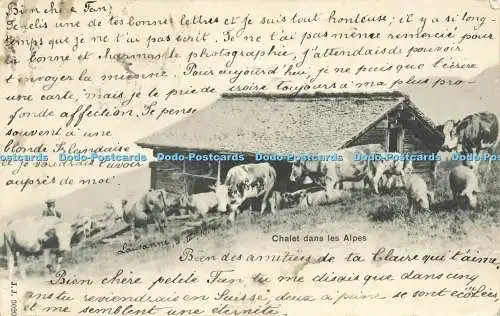 Bien chère Fan,
Je relis une de tes bonnes lettres et je suis tout honteuse; il y a si long-
temps que je ne t'ai pas écrit. Je ne t'ai pas même remercié pour
ta bonne et charmante photographie, j'attendais de pouvoir
t'envoyer la mienne. Pour aujourd'hui, je ne puis que t'écrire
une carte, mais je te prie de croire toujours à ma plus pro-
fonde affection. Je pense
souvent à une
blonde Irlandaise
Dodo-Postcards Dodo-Postcards Dodo-Postcards Dodo-Postcards Dodo-Postcards
et je voudrais l'avoir
auprès de moi.
Chalet dans les Alpes
Lausanne
Bien des amitiés de ta Claire qui t'aime.
Bien chère petite Fan, tu me disais que dans cinq
ans tu reviendrais en Suisse, deux à peine se sont écoulées
et me semblent une éternité.
J.J.